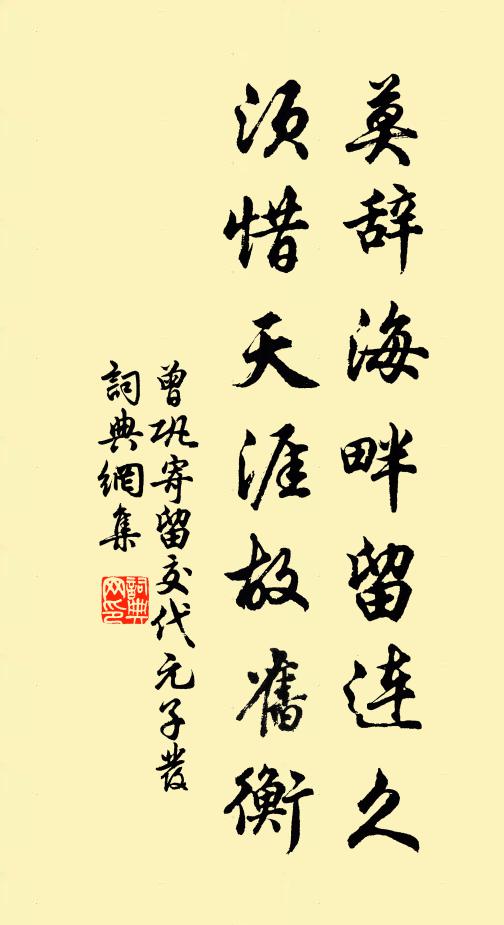 莫辞海畔留連久
須惜天涯故舊衡
曾巩寄留交代元子發
詞典網集
詞典网印